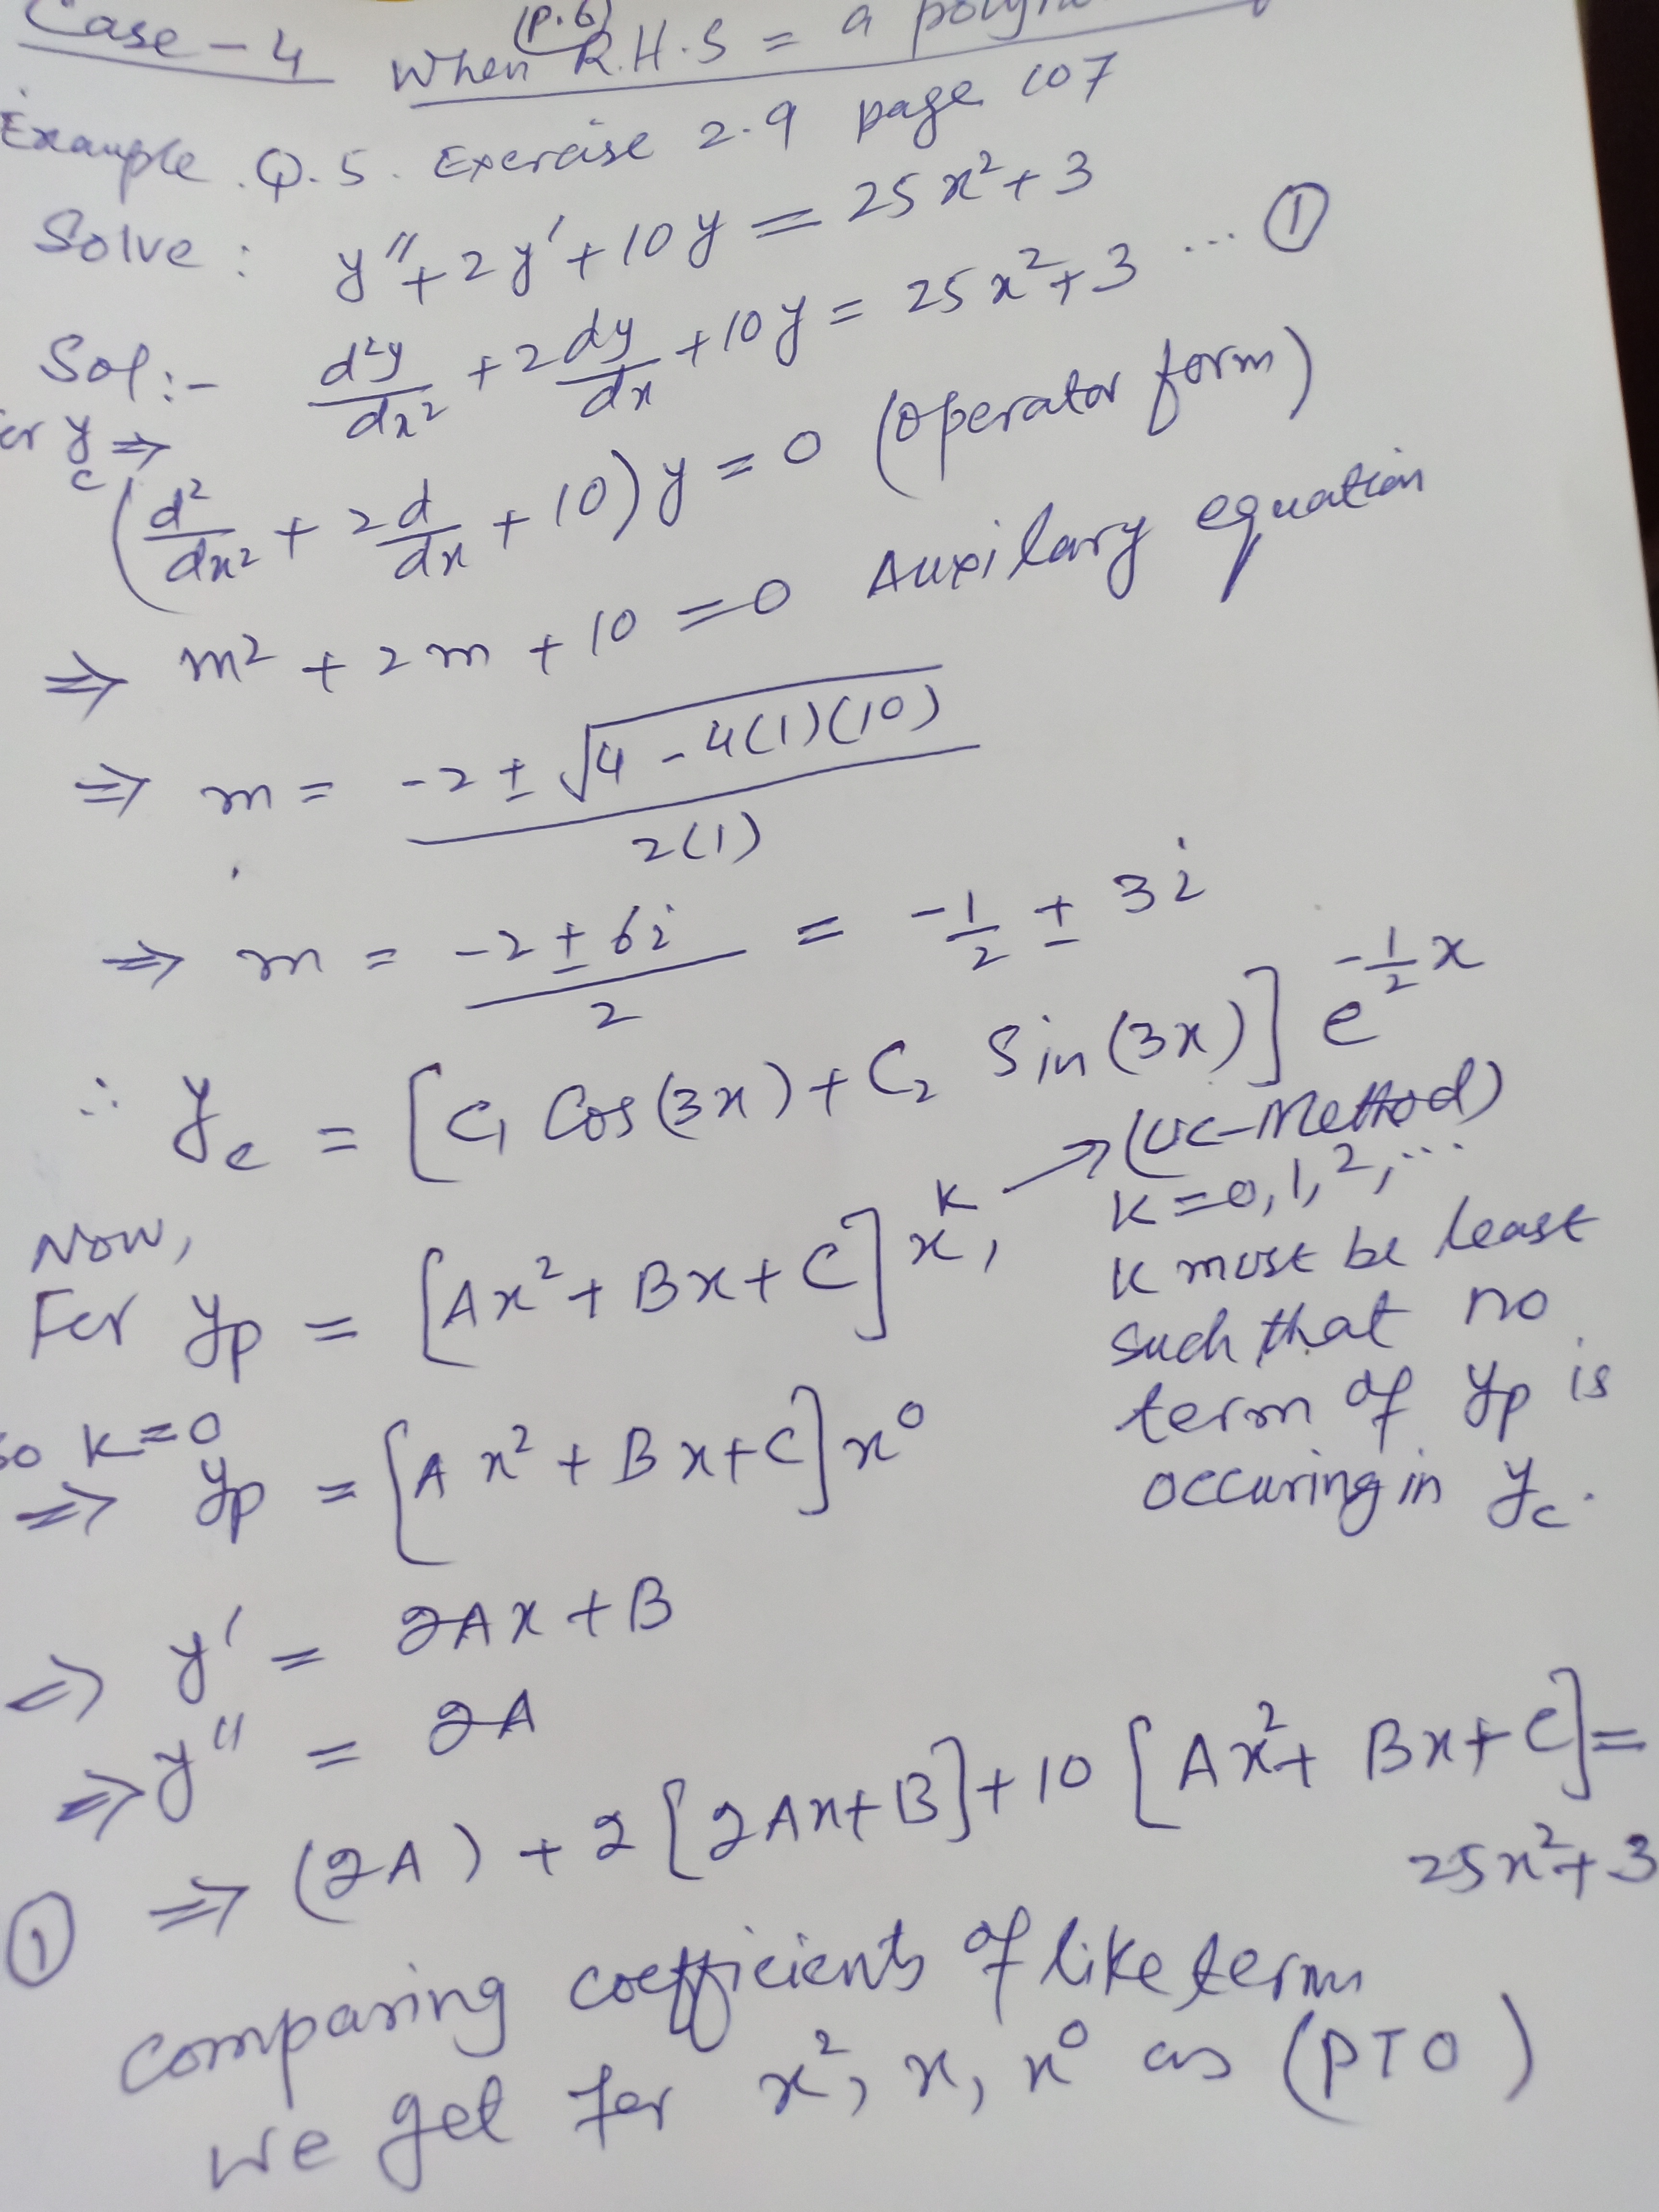 Case - 4 (P.6) When R.H.S = a
Example. Q.5. Exercise 2.9 page 107
Solve : y'' + 2y' + 10y = 25x² + 3
Sol :- d²y/dx² + 2 dy/dx + 10y = 25x² + 3 ... ①
For y_c ⇒
(d²/dx² + 2d/dx + 10) y = 0 (operator form)
⇒ m² + 2m + 10 = 0 Auxilary equation
⇒ m = (-2 ± √(4 - 4(1)(10))) / 2(1)
⇒ m = (-2 ± 6i) / 2 = -1/2 ± 3i
∴ y_c = [C₁ Cos(3x) + C₂ Sin(3x)] e^(-1/2 x)
Now,
For y_p = [Ax² + Bx + C] x^K, → (UC-Method)
K = 0, 1, 2, ...
K must be least
such that no
term of y_p is
occuring in y_c.
so K = 0
⇒ y_p = [Ax² + Bx + C] x⁰
⇒ y' = 2Ax + B
⇒ y'' = 2A
① ⇒ (2A) + 2[2Ax + B] + 10[Ax² + Bx + C] =
25x² + 3
comparing coefficients of like terms
we get for x², x, x⁰ as (PTO)